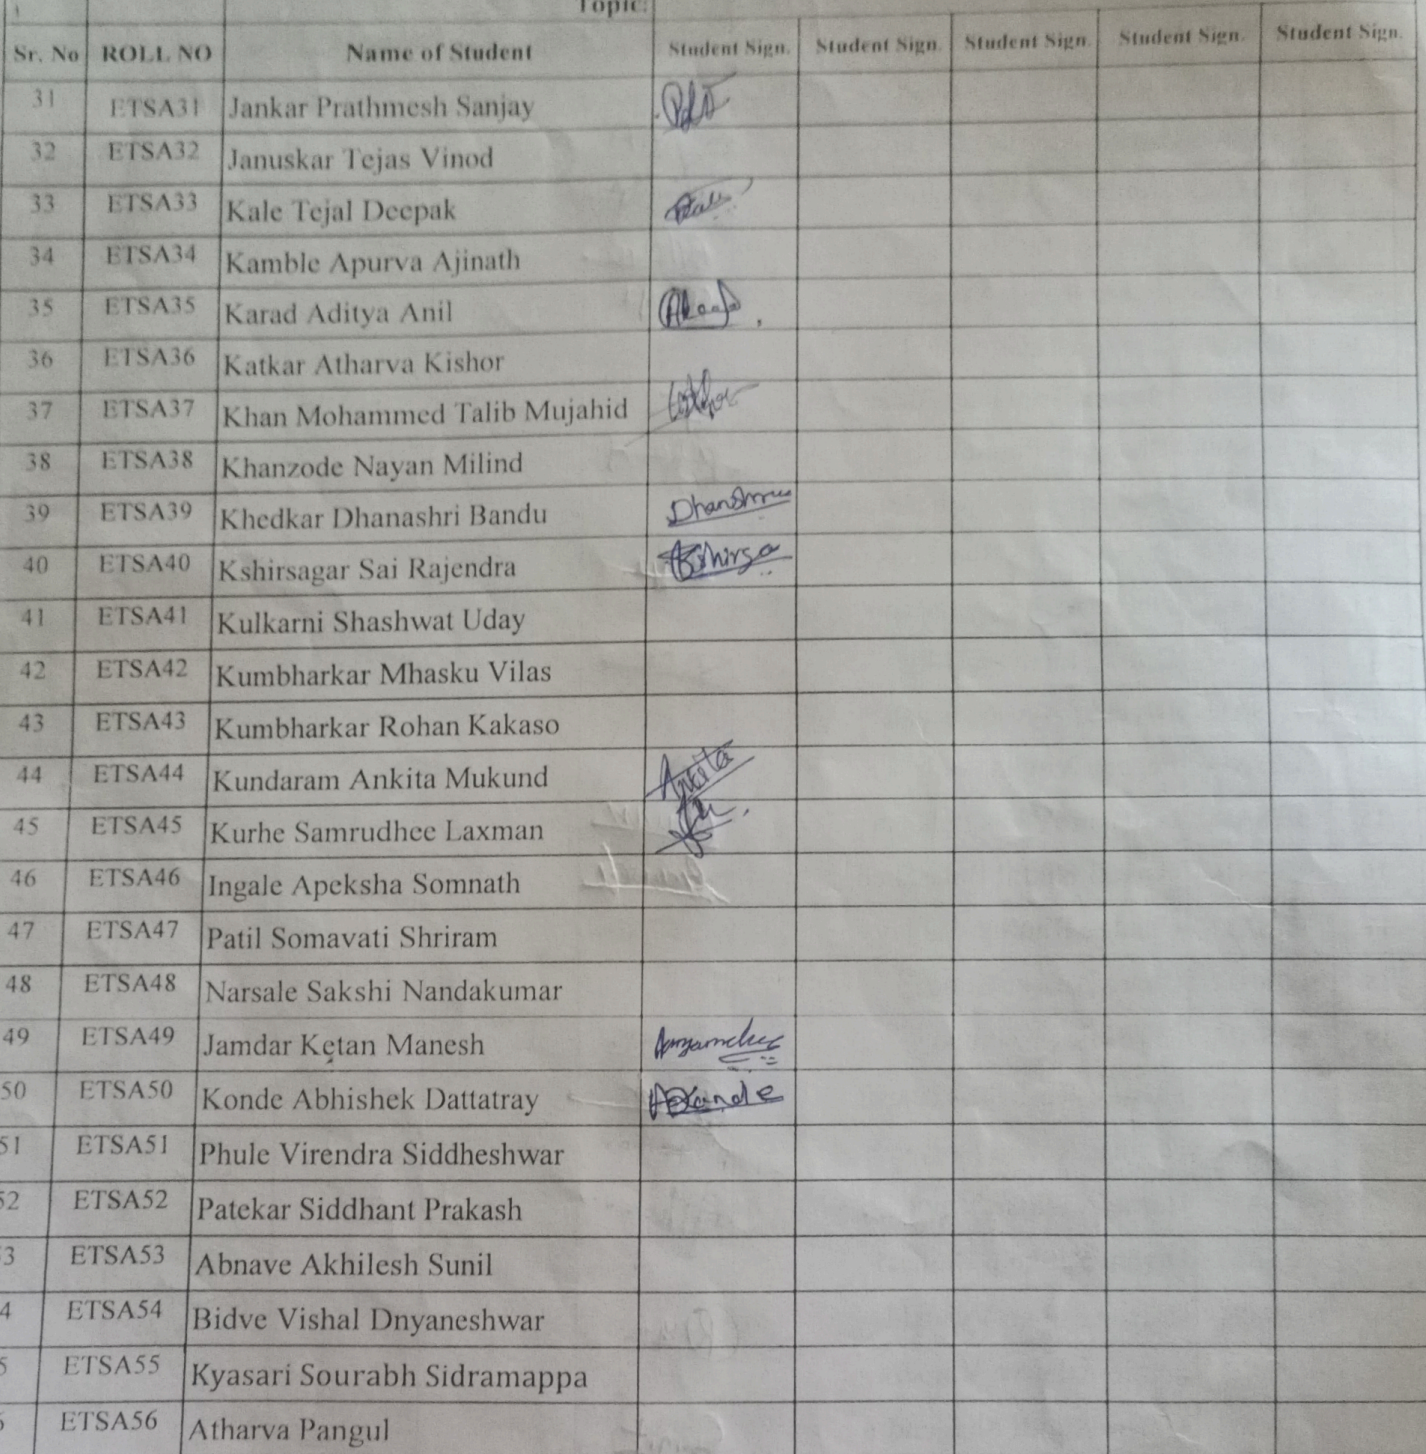 Topic:
Sr. No ROLL NO Name of Student Student Sign. Student Sign. Student Sign. Student Sign. Student Sign.
31 ETSA31 Jankar Prathmesh Sanjay
32 ETSA32 Januskar Tejas Vinod
33 ETSA33 Kale Tejal Deepak
34 ETSA34 Kamble Apurva Ajinath
35 ETSA35 Karad Aditya Anil
36 ETSA36 Katkar Atharva Kishor
37 ETSA37 Khan Mohammed Talib Mujahid
38 ETSA38 Khanzode Nayan Milind
39 ETSA39 Khedkar Dhanashri Bandu
40 ETSA40 Kshirsagar Sai Rajendra
41 ETSA41 Kulkarni Shashwat Uday
42 ETSA42 Kumbharkar Mhasku Vilas
43 ETSA43 Kumbharkar Rohan Kakaso
44 ETSA44 Kundaram Ankita Mukund Ankita
45 ETSA45 Kurhe Samrudhee Laxman
46 ETSA46 Ingale Apeksha Somnath
47 ETSA47 Patil Somavati Shriram
48 ETSA48 Narsale Sakshi Nandakumar
49 ETSA49 Jamdar Ketan Manesh
50 ETSA50 Konde Abhishek Dattatray
51 ETSA51 Phule Virendra Siddheshwar
52 ETSA52 Patekar Siddhant Prakash
3 ETSA53 Abnave Akhilesh Sunil
4 ETSA54 Bidve Vishal Dnyaneshwar
5 ETSA55 Kyasari Sourabh Sidramappa
ETSA56 Atharva Pangul